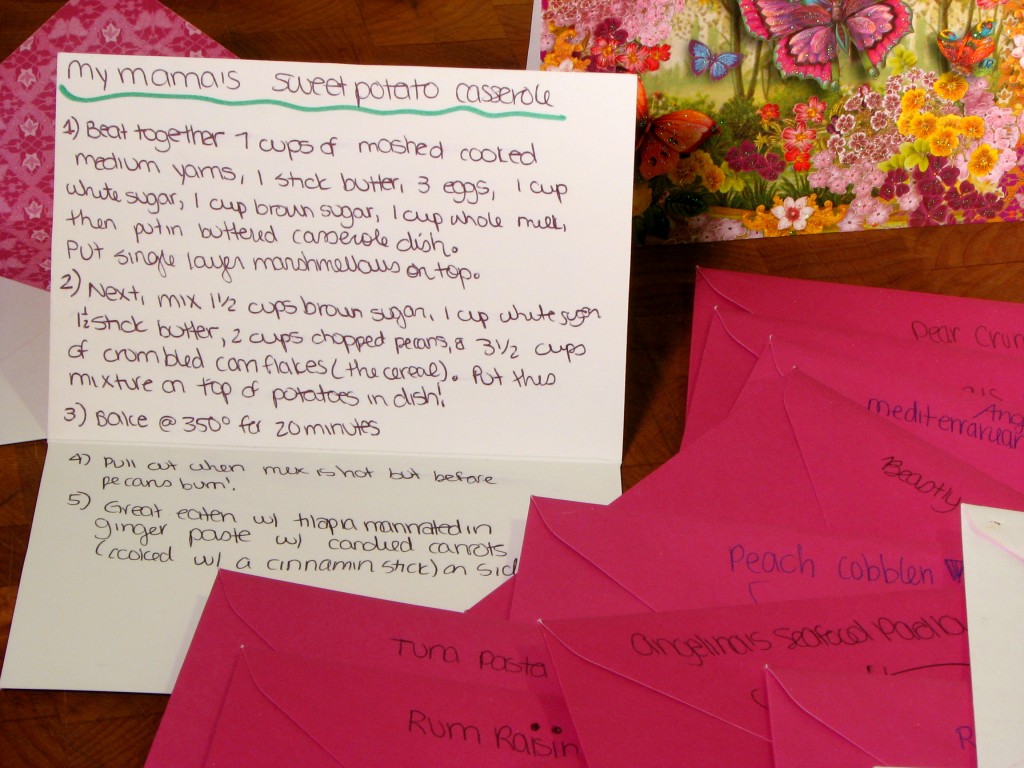 My mama's sweet potato casserole
1) Beat together 7 cups of mashed cooked
medium yams, 1 stick butter, 3 eggs, 1 cup
white sugar, 1 cup brown sugar, 1 cup whole milk,
then put in buttered casserole dish.
Put single layer marshmellows on top.
2) Next, mix 1 1/2 cups brown sugar, 1 cup white sugar
1 1/2 stick butter, 2 cups chopped pecans, & 3 1/2 cups
of crumbled corn flakes (the cereal). Put this
mixture on top of potatoes in dish!
3) Bake @ 350° for 20 minutes
4) Pull out when mix is hot but before
pecans burn!
5) Great eaten w/ tilapia marinated in
ginger paste w/ candied carrots
(cooked w/ a cinnamin stick) on sid
Pear Crum
Ang
mediterranean
Beastly
Peach cobbler
Angelina's Seafood Paella
Tuna Pasta
Rum Raisin
R